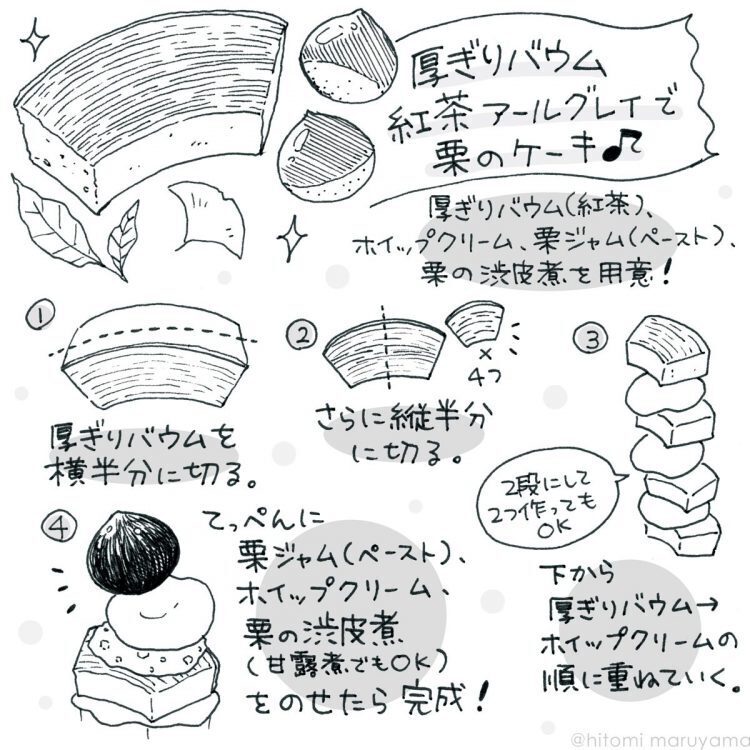 厚ぎりバウム
紅茶アールグレイで
栗のケーキ♪
厚ぎりバウム(紅茶)、
ホイップクリーム、栗ジャム(ペースト)、
栗の渋皮煮を用意!
①
厚ぎりバウムを
横半分に切る。
②
×
4つ
さらに縦半分
に切る。
③
2段にして
2つ作っても
OK
下から
厚ぎりバウム→
ホイップクリームの
順に重ねていく。
④
てっぺんに
栗ジャム(ペースト)、
ホイップクリーム、
栗の渋皮煮
(甘露煮でもOK)
をのせたら完成!
@hitomi maruyama